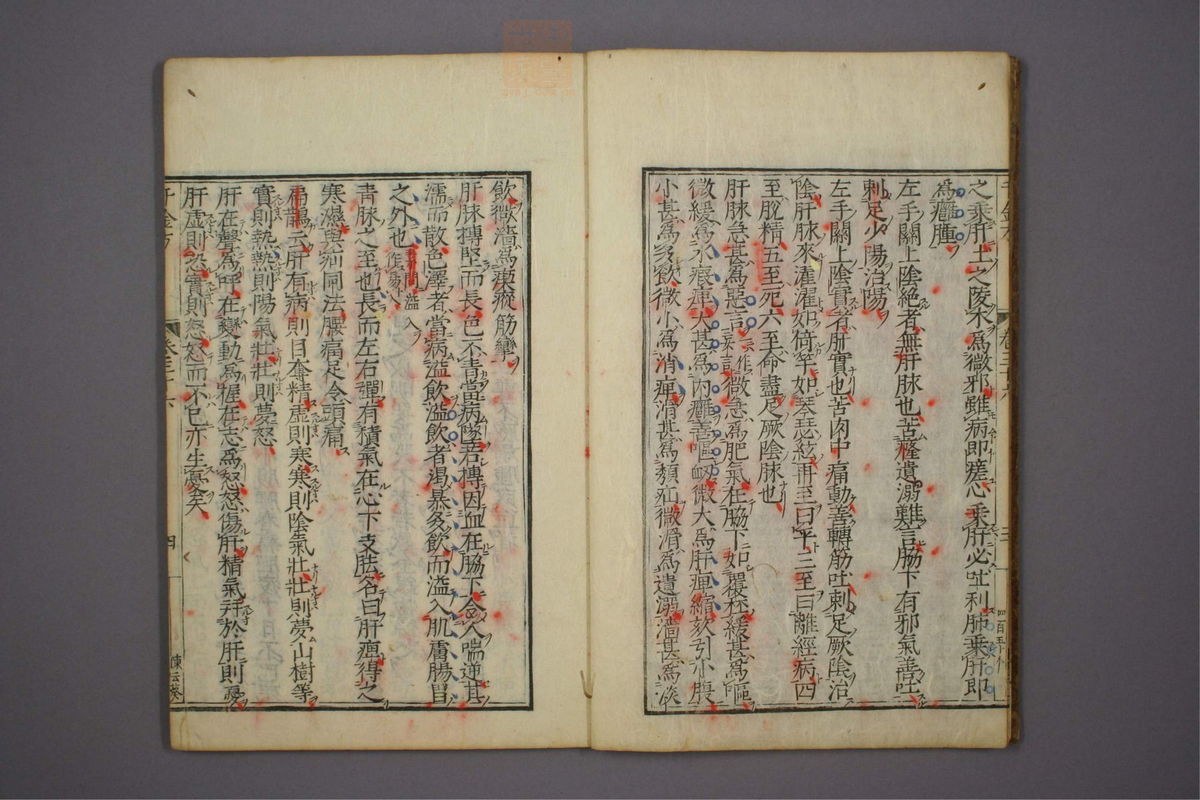 之乘肝土之陵木爲微邪雖病即瘥心乘肝必吐利肺乘肝即
爲癰腫
左手關上陰絕者無肝脉也苦癃遺溺難言脇下有邪氣善吐
刺足少陽治陽
左手關上陰實者肝實也苦肉中痛動善轉筋吐刺足厥陰治
陰肝脉來濯濯如倚竿如琴瑟絃再至曰平三至曰離經病四
至脫精五至死六至命盡足厥陰脉也
肝脉急甚爲惡言一作妄言微急爲肥氣在脇下如覆杯緩甚爲嘔
微緩爲水瘕痺大甚爲內癰善嘔衂微大爲肝痺縮欬引小腹
小甚爲多飲微小爲消癉滑甚爲㿉疝微滑爲遺溺濇甚爲淡
飲微濇爲瘈瘲筋攣
肝脉搏堅而長色不青當病墜若搏因血在脇下令人喘逆其
濡而散色澤者當病溢飲溢飲者渴暴多飲而溢入肌膚腸胃
之外也素問溢作易入
青脉之至也長而左右彈有積氣在心下支胠名曰肝痺得之
寒濕與疝同法腰痛足冷頭痛
扁鵲云肝有病則目奪精虛則寒寒則陰氣壯壯則夢山樹等
實則熱熱則陽氣壯壯則夢怒
肝在聲爲呼在變動爲握在志爲怒怒傷肝精氣并於肝則憂
肝虛則恐實則怒怒而不已亦生憂矣
四